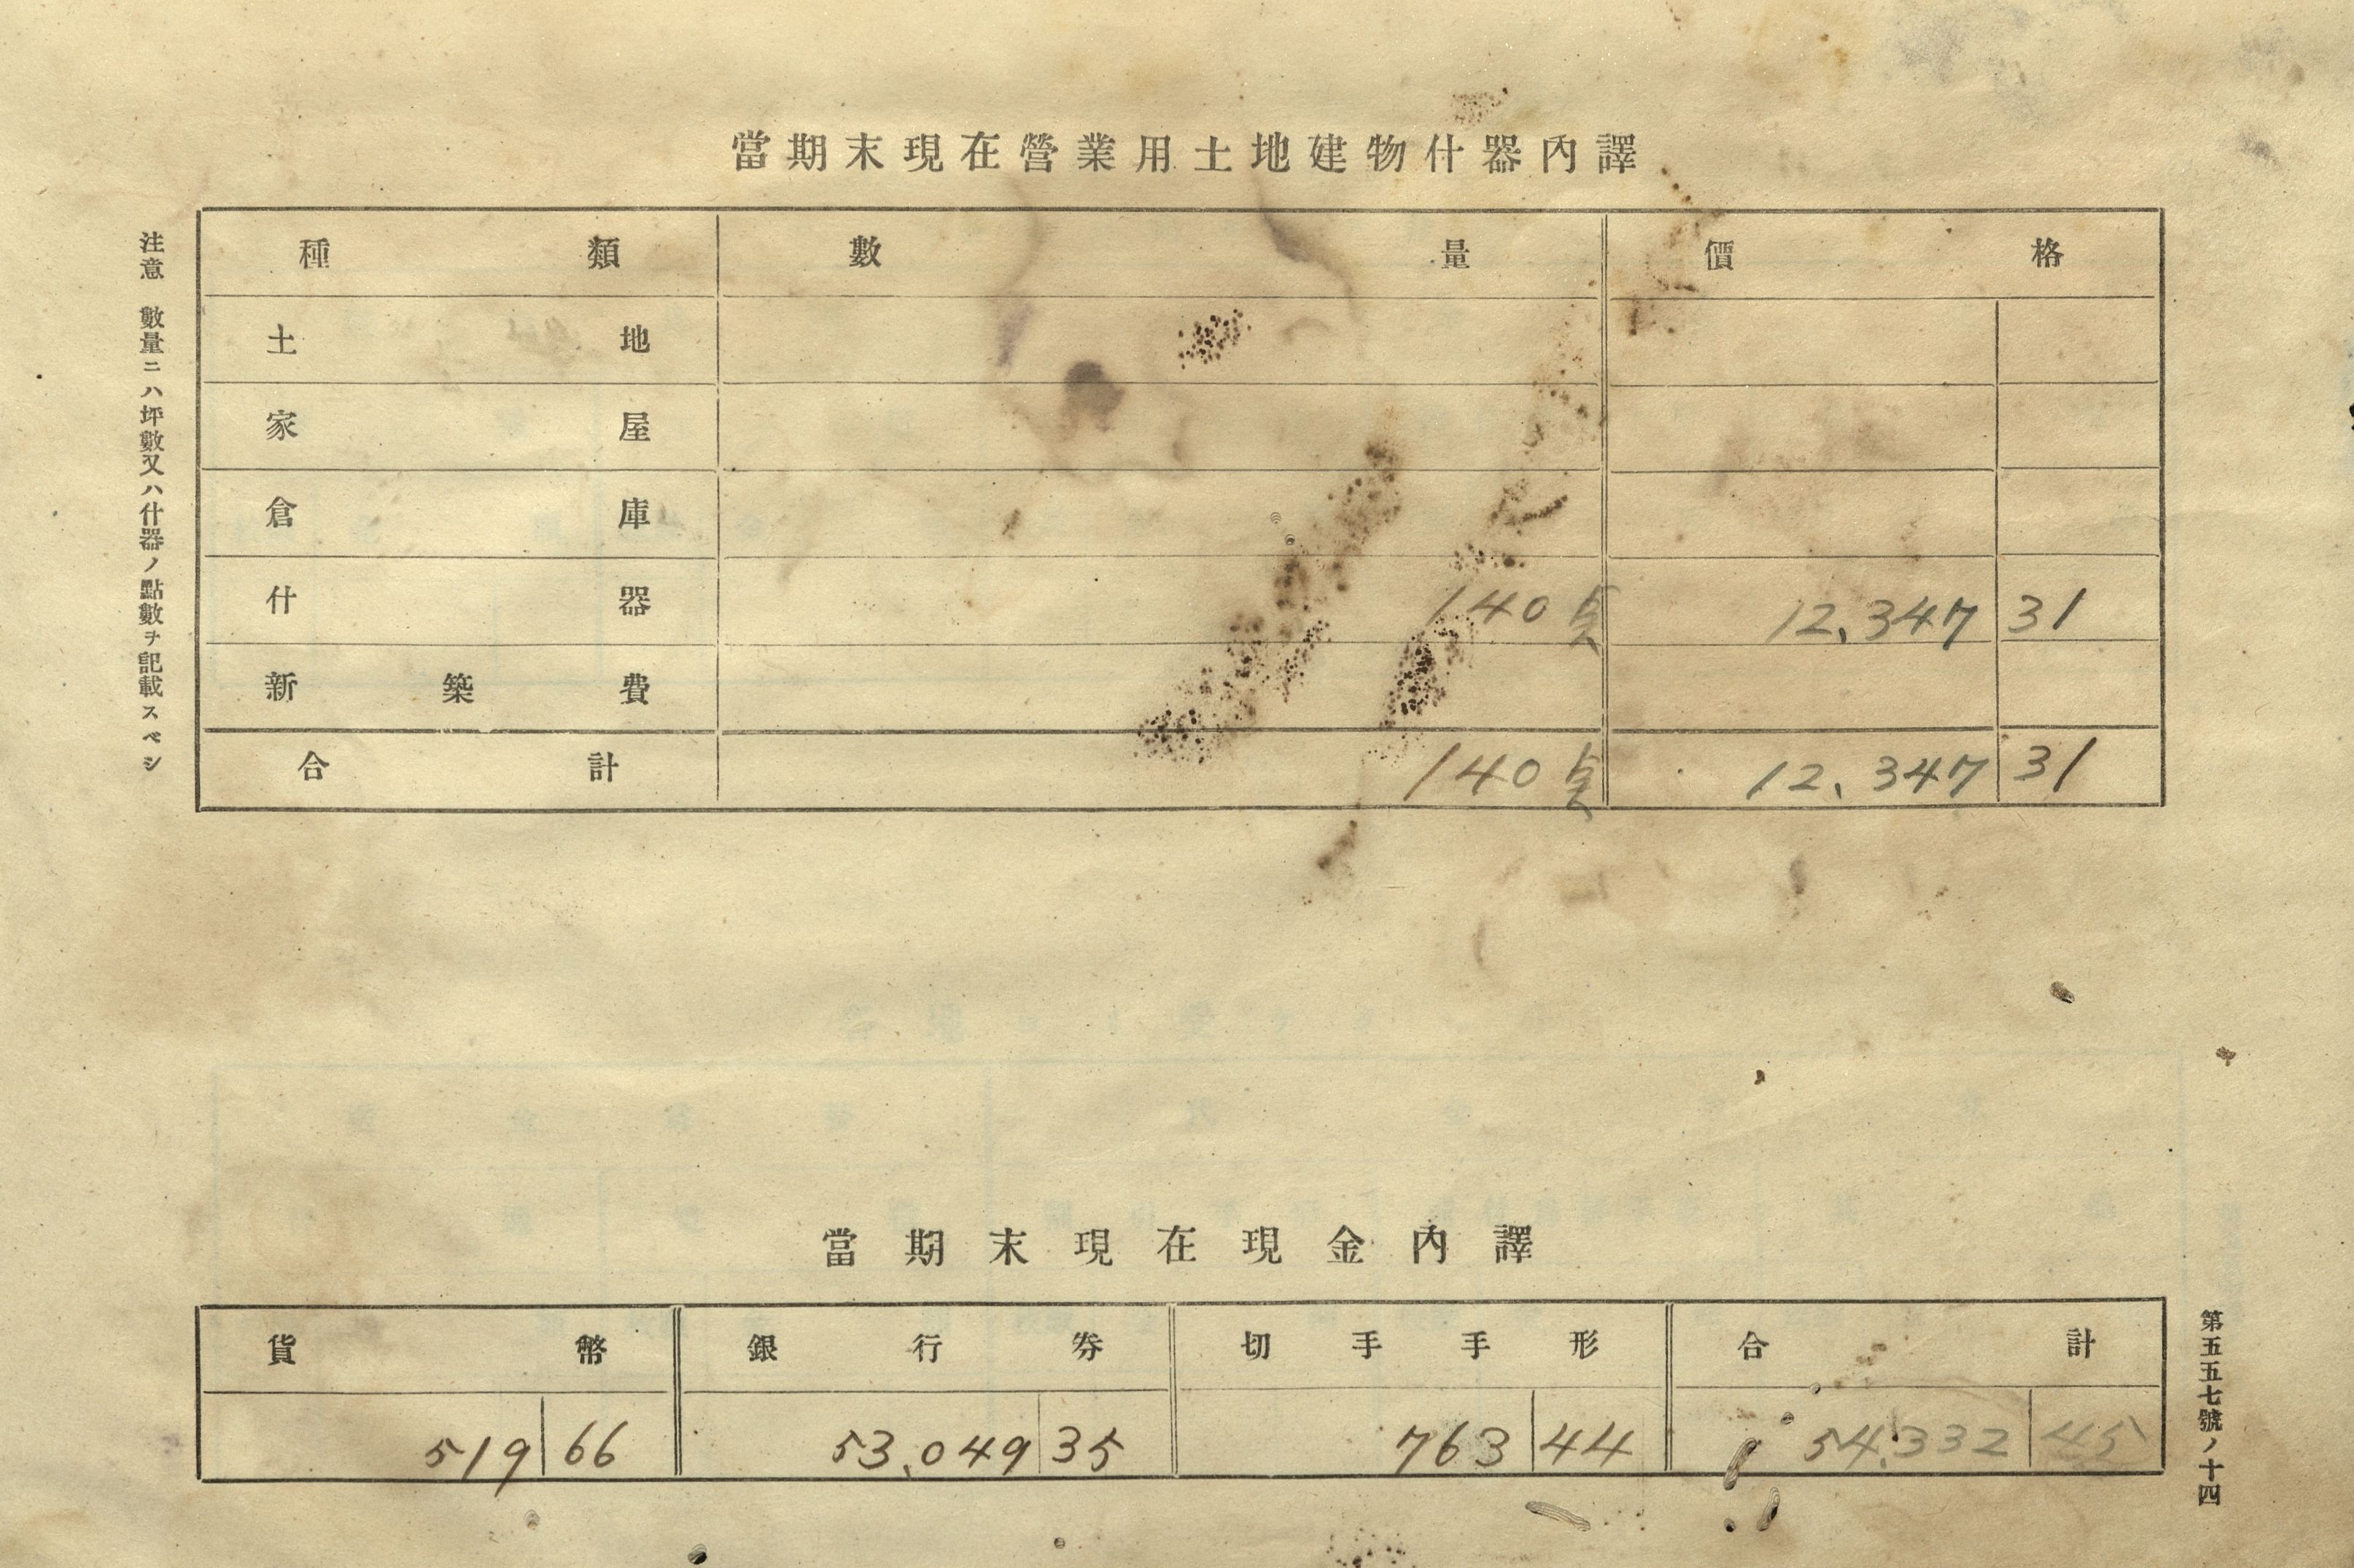 當期末現在營業用土地建物什器內譯
種類 數量 價格
土地
家屋
倉庫
什器 140点 12,347 31
新築費
合計 140点 12,347 31
注意 數量ニハ坪數又ハ什器ノ點數ヲ記載スベシ
當期末現在現金內譯
貨幣 銀行券 切手手形 合計
519 66 53,049 35 763 44 54,332 45
第五五七號ノ十四